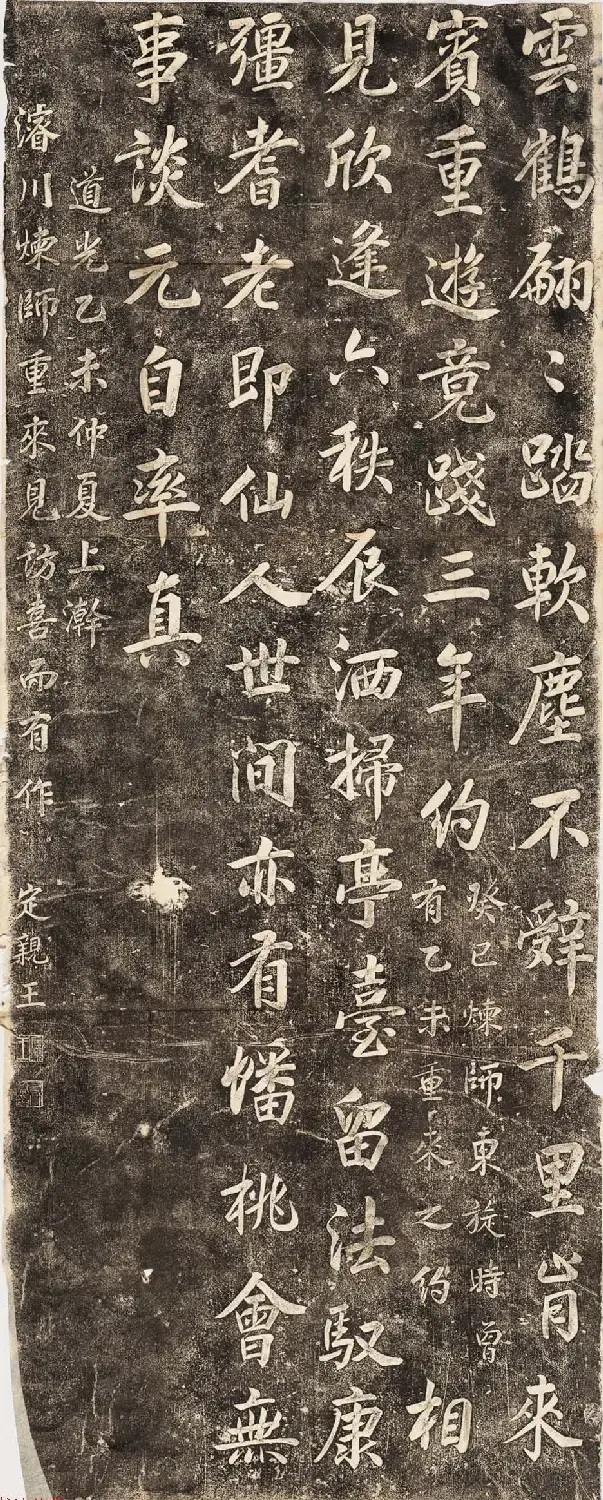 雲鶴翩〻踏軟塵不辭千里肯來
賓重遊竟踐三年約
癸巳煉師東旋時曾
有乙未重來之約
相
見欣逢六秩辰洒掃亭臺留法馭康
彊耆老即仙人世間亦有蟠桃會無
事談元自率真
道光乙未仲夏上澣
濬川煉師重來見訪喜而有作 定親王